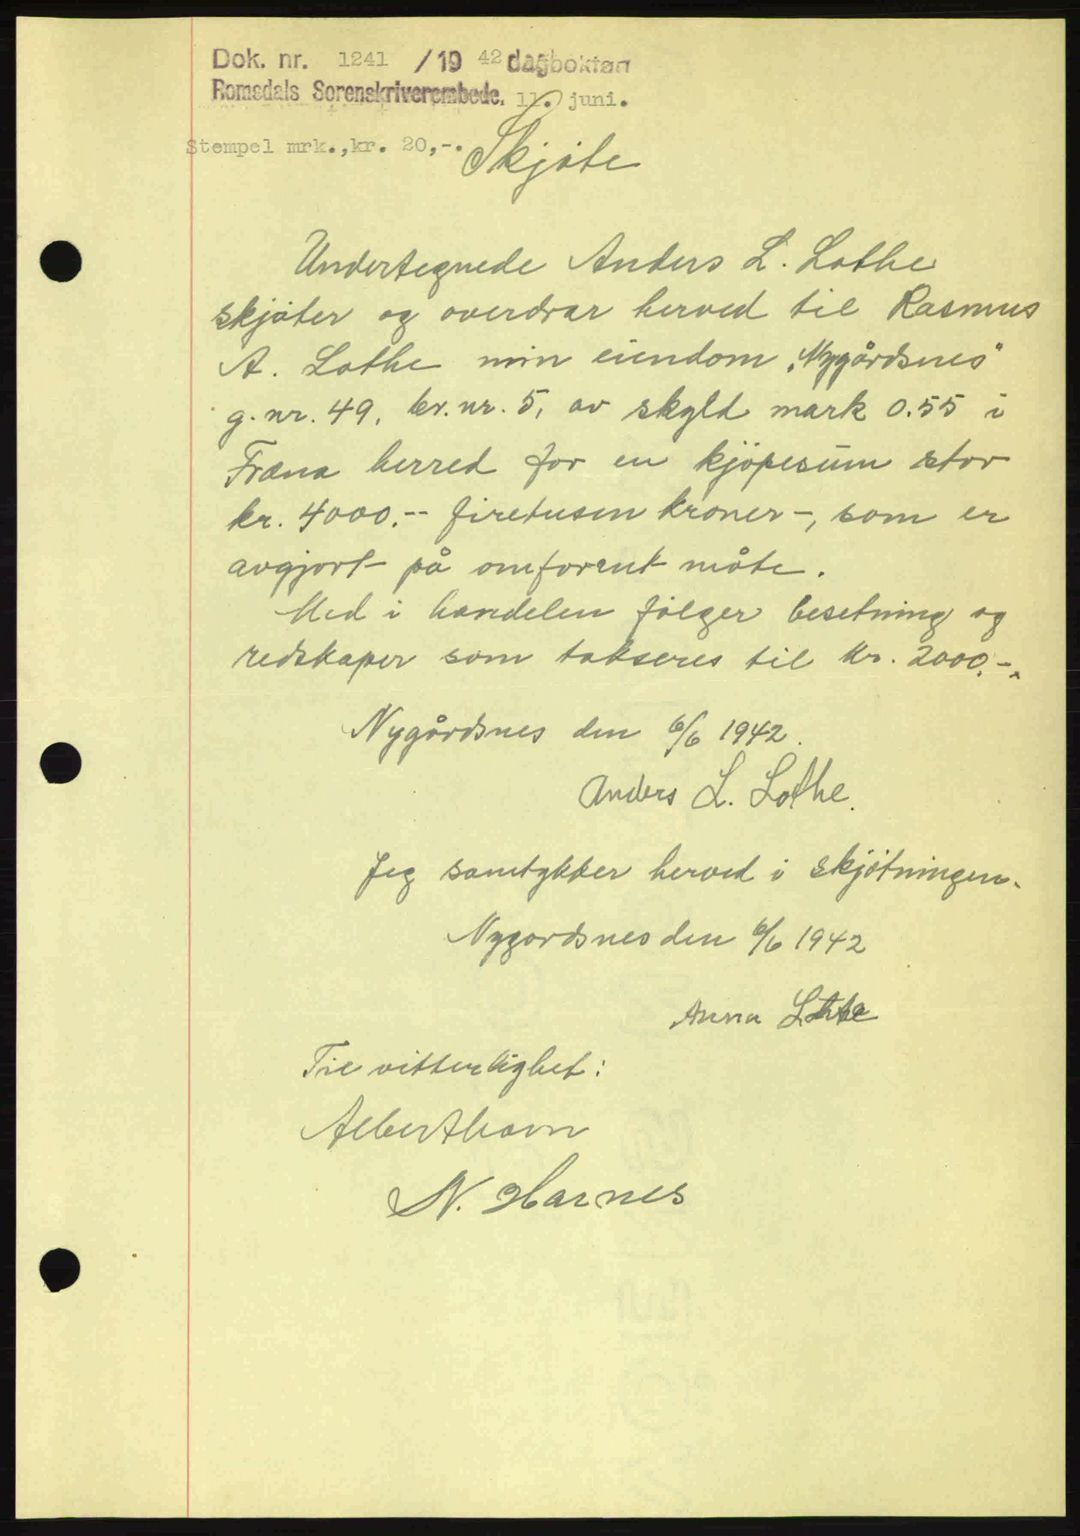 Dok. nr. 1241 /19 42 dagboktøn
Romsdals Sorenskriverembede, 11. juni.
Stempel mrk.,kr. 20,-.
Skjøte
Undertegnede Anders L. Lothe
skjøter og overdrar herved til Rasmus
A. Lothe min eiendom "Nygårdsnes"
g.nr. 49, br.nr. 5, av skyld mark 0.55 i
Fræna herred for en kjøpesum stor
kr. 4000.-- firetusen kroner-, som er
avgjort på omforent måte.
Med i handelen følger besetning og
redskaper som takseres til kr. 2000.-.
Nygårdsnes den 6/6 1942.
Anders L. Lothe.
Jeg samtykker herved i skjøtningen.
Nygardsnes den 6/6 1942
Anna Lothe
Til vitterlighet:
Albert Havn
N. Harnes